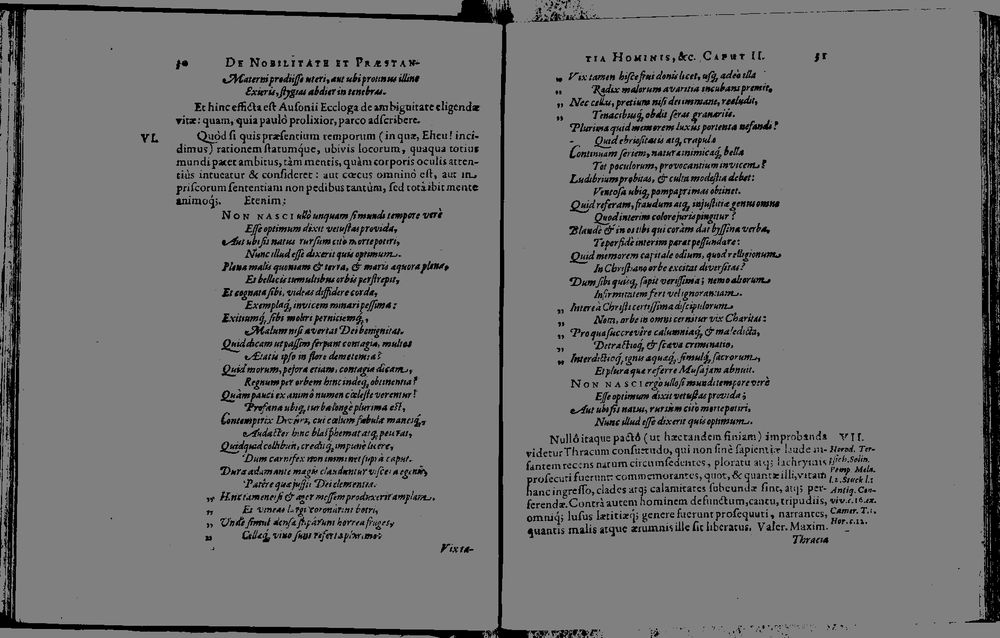 30 DE NOBILITATE ET PRÆSTAN-
Materni prodiisse uteri, aut ubi protinus illine
Exieris, stygias abdier in tenebras.
Et hinc efficta est Ausonii Eccloga de ambiguitate eligendæ
vitæ: quam, quia paulò prolixior, parco adscribere.
VI. Quòd si quis præsentium temporum (in quæ, Eheu! inci-
dimus) rationem statumque, ubivis locorum, quaqua totius
mundi patet ambitus, tàm mentis, quàm corporis oculis atten-
tiùs intueatur & consideret: aut cœcus omninò est, aut in
priscorum sententiam non pedibus tantùm, sed totâ ibit mente
animoq;. Etenim;
NON NASCI ullò unquam si mundi tempore verè
Esse optimum dixit vetustas provida,
Aut ubi sis natus rursum cito morte potiri,
Nunc illud esse dixerit quis optimum.
Plena malis quoniam & terra, & maris æquora plena,
Et bellicis tumultibus orbis perstrepit,
Et cognata sibi, videas diffidere corda,
Exemplaq; invicem minari pessima:
Exitiumq; sibi moliri perniciemq;,
Malum nisi avertat Dei benignitas.
Quid dicam ut passim serpant contagia, multos
Ætatis ipso in flore demetentia?
Quid morum, pejora etiam, contagia dicam,
Regnum per orbem hinc indeq; obtinentia?
Quàm pauci ex animò numen cœleste verentur?
Profana ubiq; turba longè plurima est,
Contemptrix Divûm, cui cœlum fabula manesq;,
Audacter hinc blasphemat atq; pejerat,
Quidquid collibun, creditq; impunè licere,
Dum carnifex non imminet suprà caput.
Dura adamante magis clauduntur viscera egenis,
Patêre quæ jussit Dei clementia.
„ Hinc tametsi & ager messem produxerit amplam,
„ Et vineas largi coronarint botri,
„ Unde simul densa stiparint horrea fruges,
„ Cellæq; vino sunt refertæ plurimo:
Vix ta-
TIA HOMINIS, &c. CAPUT II. 31
„ Vix tamen hisce frui donis licet, usq; adeò illa
„ Radix malorum avaritia incubans premit,
„ Nec cellas, pretium nisi det immane, recludit,
„ Tenacibusq; obdit seras granariis.
Plurima quid memorem luxus portenta nefandi?
Quid ebriositatis atq; crapulæ
Continuam seriem, natura inimicaq; bella
Tot poculorum, provocantium invicem?
Ludibrium probitas, & culta modestia debet:
Ventosa ubiq; pompa primas obtinet.
Quid referam, fraudum atq; injustitiæ genus omne
Quod interim colore juris pingitur?
Blandè & in os tibi qui coràm dat byssina verba,
Te perfidè interim parat pessundare:
Quid memorem capitale odium, quod relligionum
In Christiano orbe excitat diversitas?
Dum sibi quisq; sapit verissima; nemo aliorum
Infirmitatem fert vel ignorantiam.
„ Interea Christi certissima discipulorum
„ Nota, orbe in omni cernitur vix Charitas:
„ Pro qua succrevêre calumniaq; & maledicta,
„ Detractioq; & scæva criminatio,
„ Interdictioq; ignis aquæq; simulq; sacrorum,
Et plura quæ referre Musa jam abnuit.
NON NASCI ergò ullo si mundi tempore verè
Esse optimum dixit vetustas provida;
Aut ubi sis natus, rursum cito morte potiri,
Nunc illud esse dixerit quis optimum.
Nullô itaque pactô (ut hæc tandem finiam) improbanda VII.
videtur Thracum consuetudo, qui non sinè sapientiæ laude in- Herod. Ter-
fantem recens natum circumsedentes, ploratu atq; lachrymis psich. Solin.
prosecuti fuerunt: commemorantes, quot, & quantæ illi, vitam Pomp. Mela.
hanc ingresso, clades atq; calamitates subeundæ sint, atq; per- l.2. Stuck l.1
ferendæ. Contrà autem hominem defunctum, cantu, tripudiis, Antiq. Con-
omniq; lusus lætitiæq; genere fuerunt prosequuti, narrantes, viv. c.16. ex.
quantis malis atque ærumnis ille sit liberatus. Valer. Maxim. Camer. T.1.
Hor. c.12.
Thracia